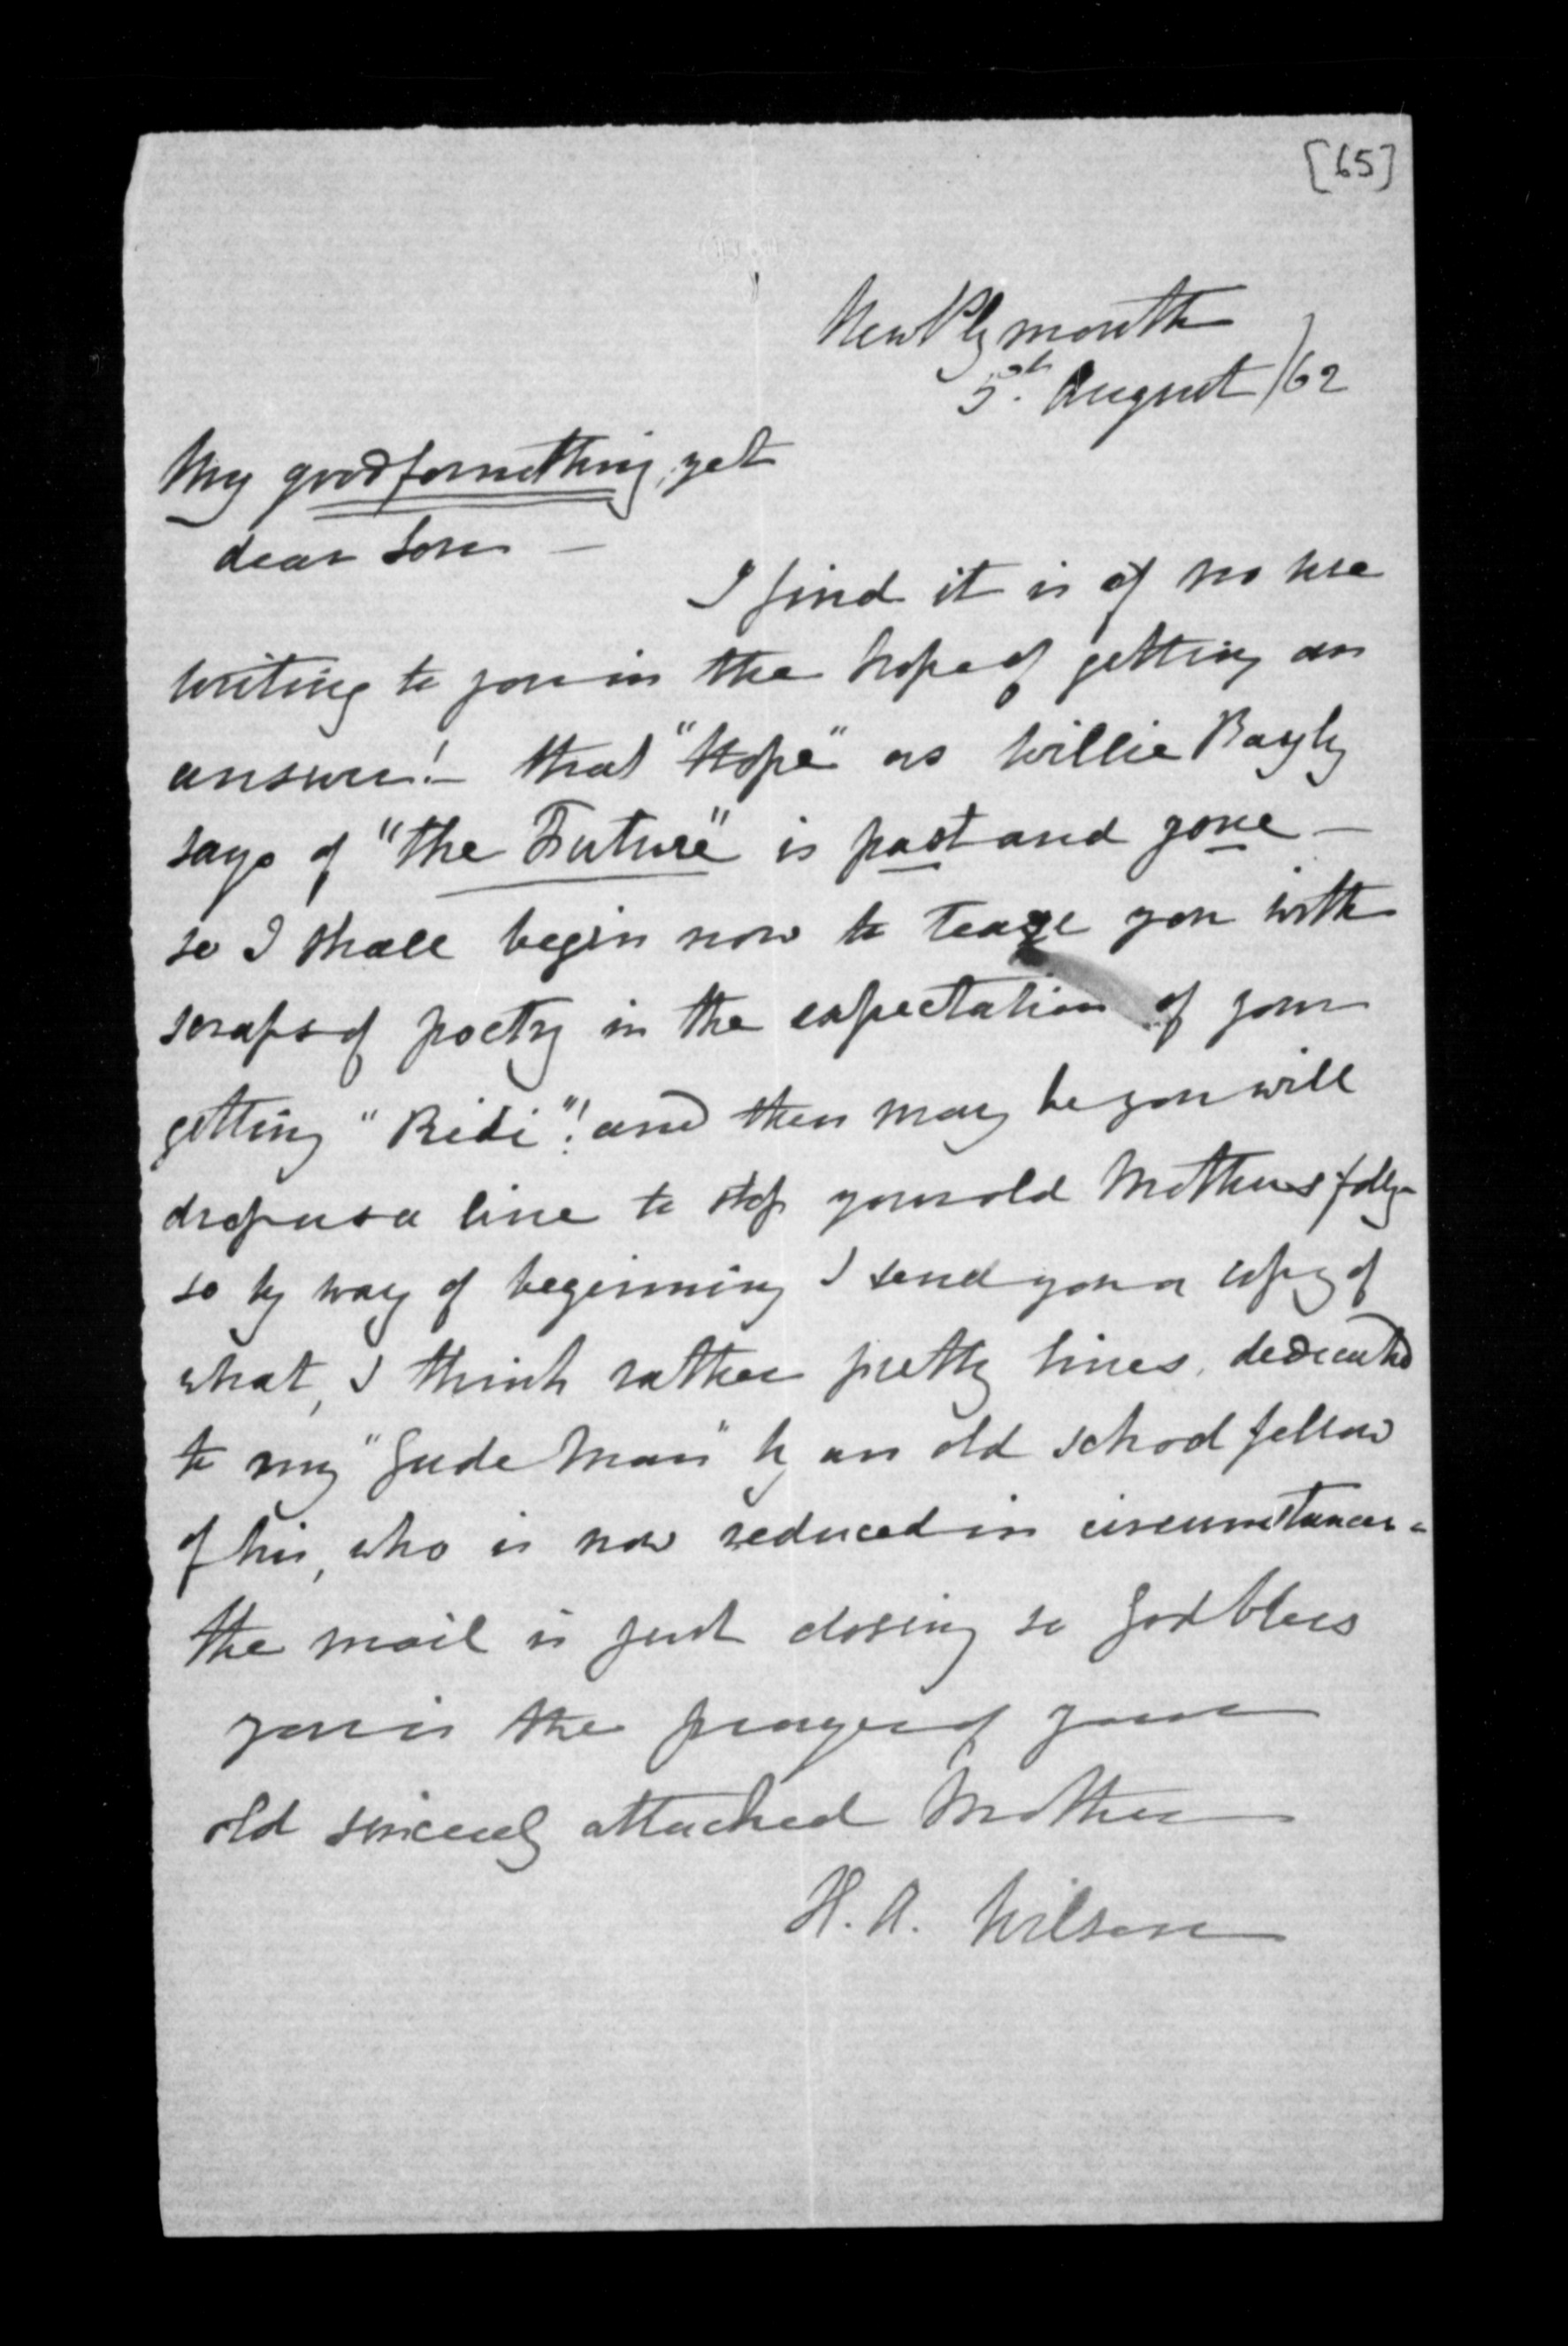 [65]
New Plymouth
5th. August /62
My good for nothing, yet
dear Son —
I find it is of no use
writing to you in the hope of getting an
answer! — that "Hope" as Willie Bayly
says of "the Future" is past and gone —
so I shall begin now to teaze you with
scraps of poetry in the expectation of your
getting "Ridi"! and then may be you will
drop us a line to stop your old Mothers folly —
so by way of beginning I send you a copy of
what, I think rather pretty lines, dedicated
to my "Gude Man" by an old school fellow
of his, who is now reduced in circumstances —
the mail is just closing so God bless
you is the prayer of your
old sincerely attached Mother
H. A. Wilson